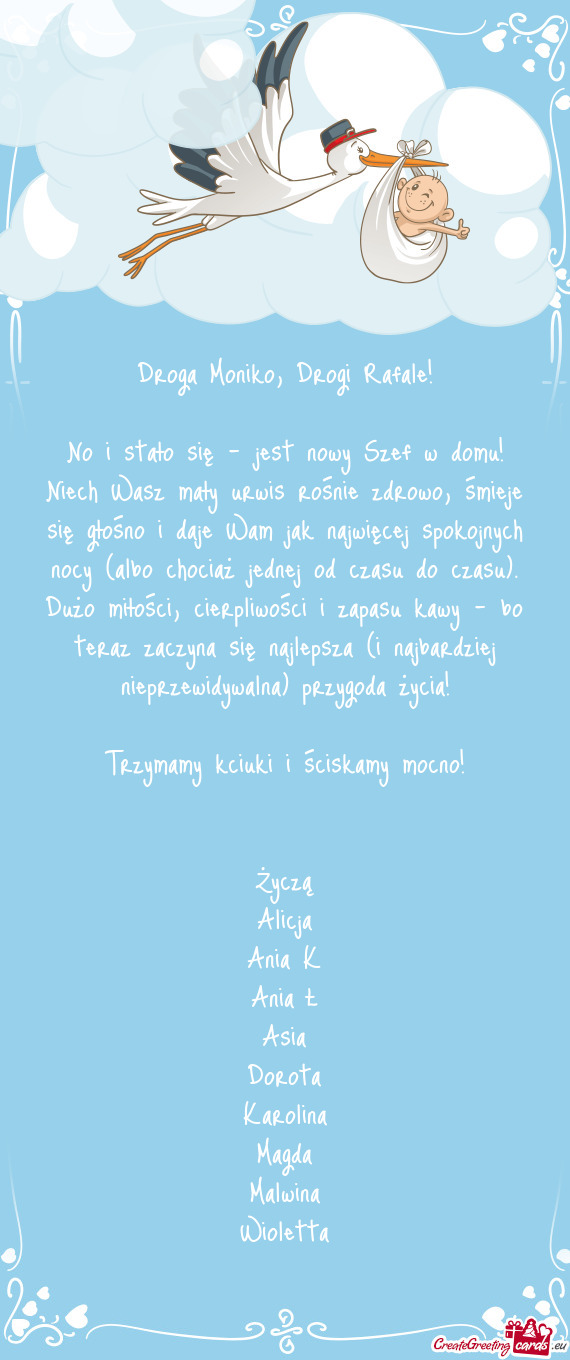 Droga Moniko, Drogi Rafale!
No i stało się - jest nowy Szef w domu!
Niech Wasz mały urwis rośnie zdrowo, śmieje
się głośno i daje Wam jak najwięcej spokojnych
nocy (albo chociaż jednej od czasu do czasu).
Dużo miłości, cierpliwości i zapasu kawy - bo
teraz zaczyna się najlepsza (i najbardziej
nieprzewidywalna) przygoda życia!
Trzymamy kciuki i ściskamy mocno!
Życzą
Alicja
Ania K
Ania Ł
Asia
Dorota
Karolina
Magda
Malwina
Wioletta
CreateGreeting cards .eu